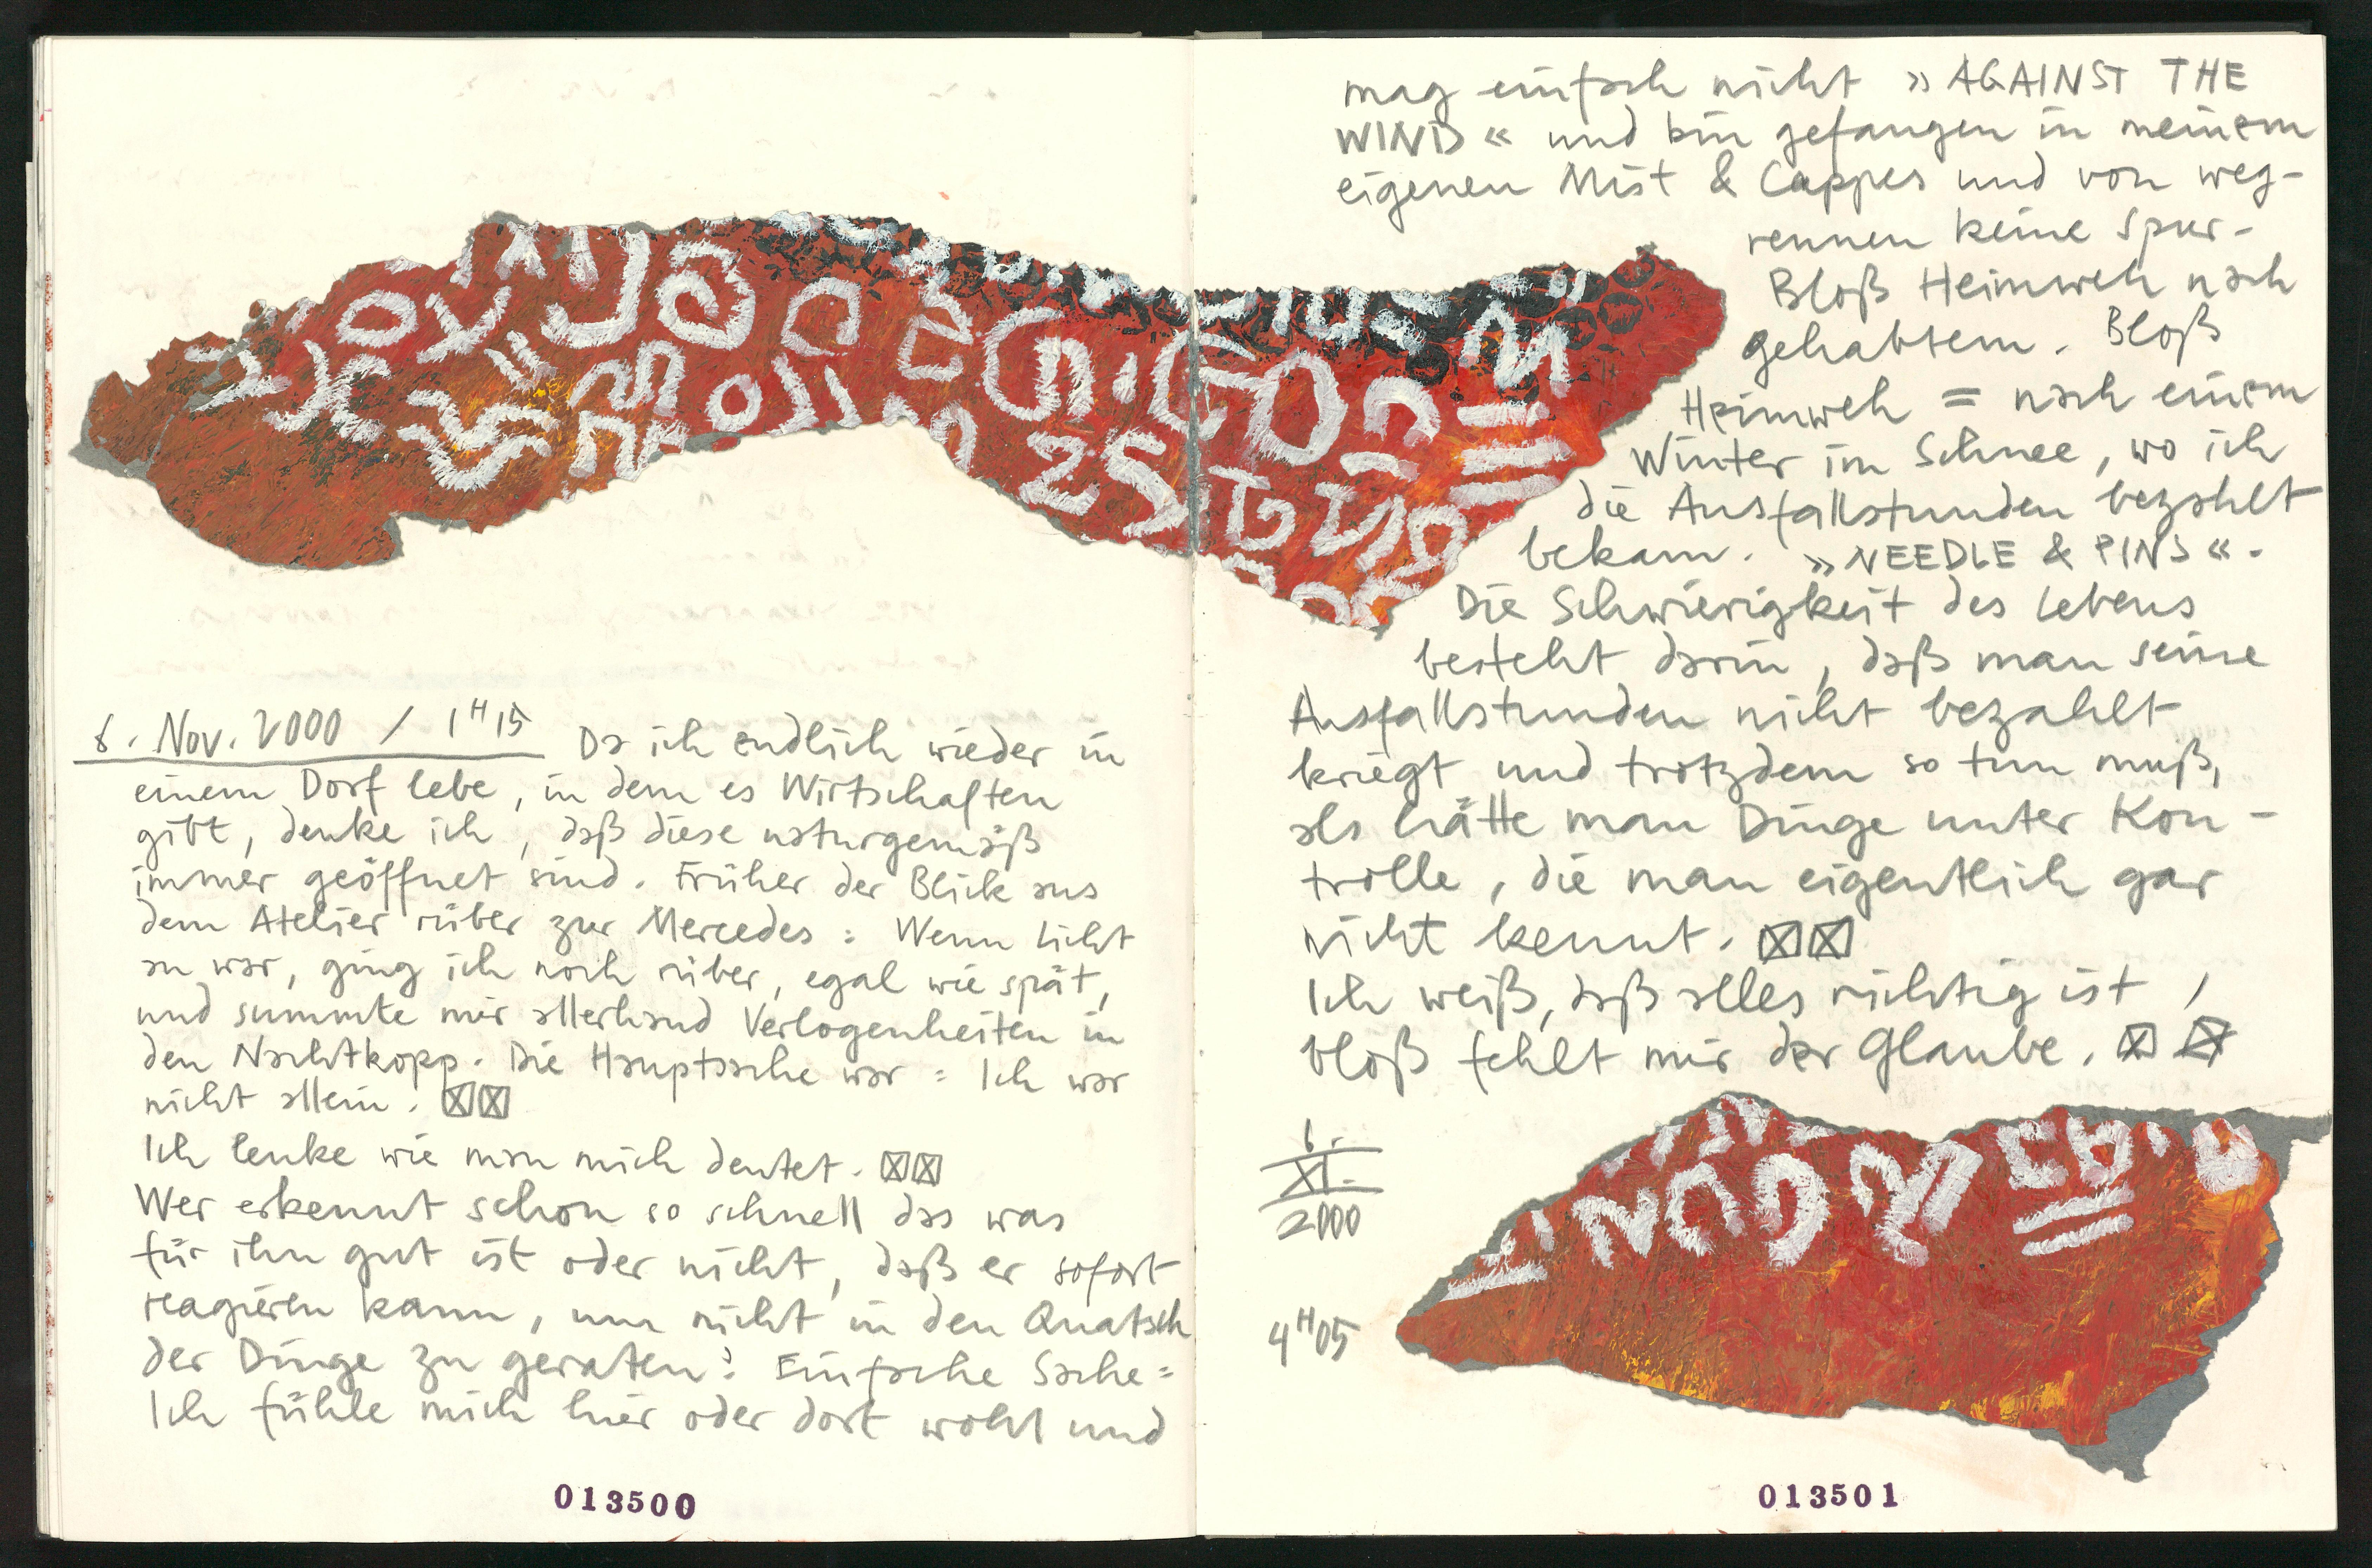 6. Nov. 2000 / 1H15 Da ich endlich wieder in
einem Dorf lebe, in dem es Wirtschaften
gibt, denke ich, daß diese naturgemäß
immer geöffnet sind. Früher der Blick aus
dem Atelier rüber zur Mercedes: Wenn Licht
an war, ging ich noch rüber, egal wie spät,
und summte mir allerhand Verlogenheiten in
den Nachtkopp. Die Hauptsache war: Ich war
nicht allein. ☒☒
Ich lenke wie man mich deutet. ☒☒
Wer erkennt schon so schnell das was
für ihn gut ist oder nicht, daß er sofort
reagieren kann, um nicht in den Quatsch
der Dinge zu geraten? Einfache Sache:
Ich fühle mich hier oder dort wohl und
013500
mag einfach nicht »AGAINST THE
WIND« und bin gefangen in meinem
eigenen Mist & Cappes und von weg-
rennen keine Spur-
Bloß Heimweh nach
gehabtem. Bloß
Heimweh = nach einem
Winter im Schnee, wo ich
die Ausfallstunden bezahlt
bekam. »NEEDLE & PINS«.
Die Schwierigkeit des Lebens
besteht darin, daß man seine
Ausfallstunden nicht bezahlt
kriegt und trotzdem so tun muß,
als hätte man Dinge unter Kon-
trolle, die man eigentlich gar
nicht kennt. ☒☒
Ich weiß, daß alles richtig ist,
bloß fehlt mir der Glaube. ☒☒
6.
XI.
2000
4H05
013501